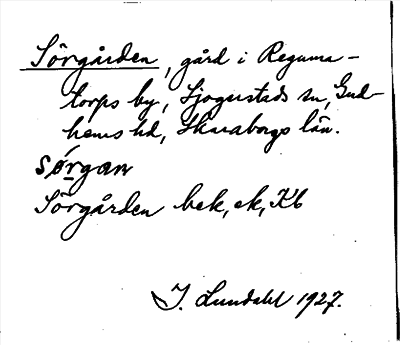 Sörgården, gård i Reguma-
torps by, Sjogerstads sn, Gud-
hems hd, Skaraborgs län.
sǿrgan
Sörgården bek, ek, Kb
I. Lundahl 1927.